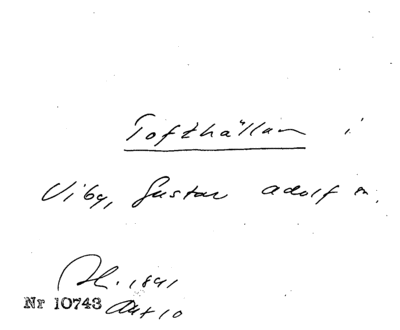 Tofthällan i
Viby, Gustav Adolf sn.
Sk. 1841
Nr 10743 Akt 10